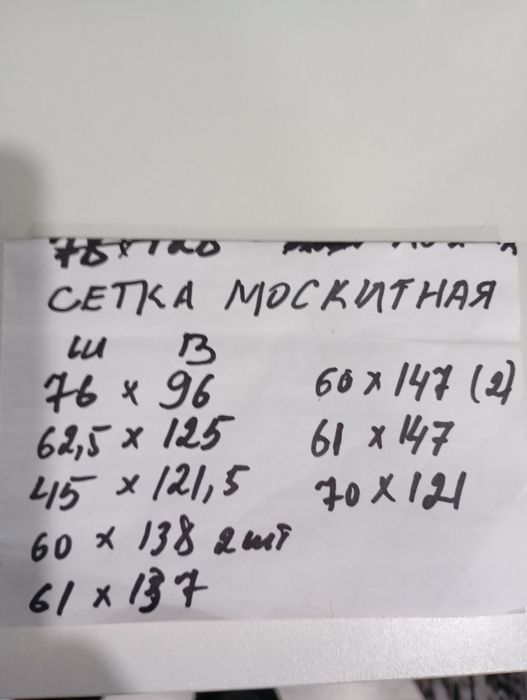 СЕТКА МОСКИТНАЯ
Ш В
76 x 96
62,5 x 125
45 x 121,5
60 x 138 2 шт
61 x 137
60 x 147 (2)
61 x 147
70 x 121